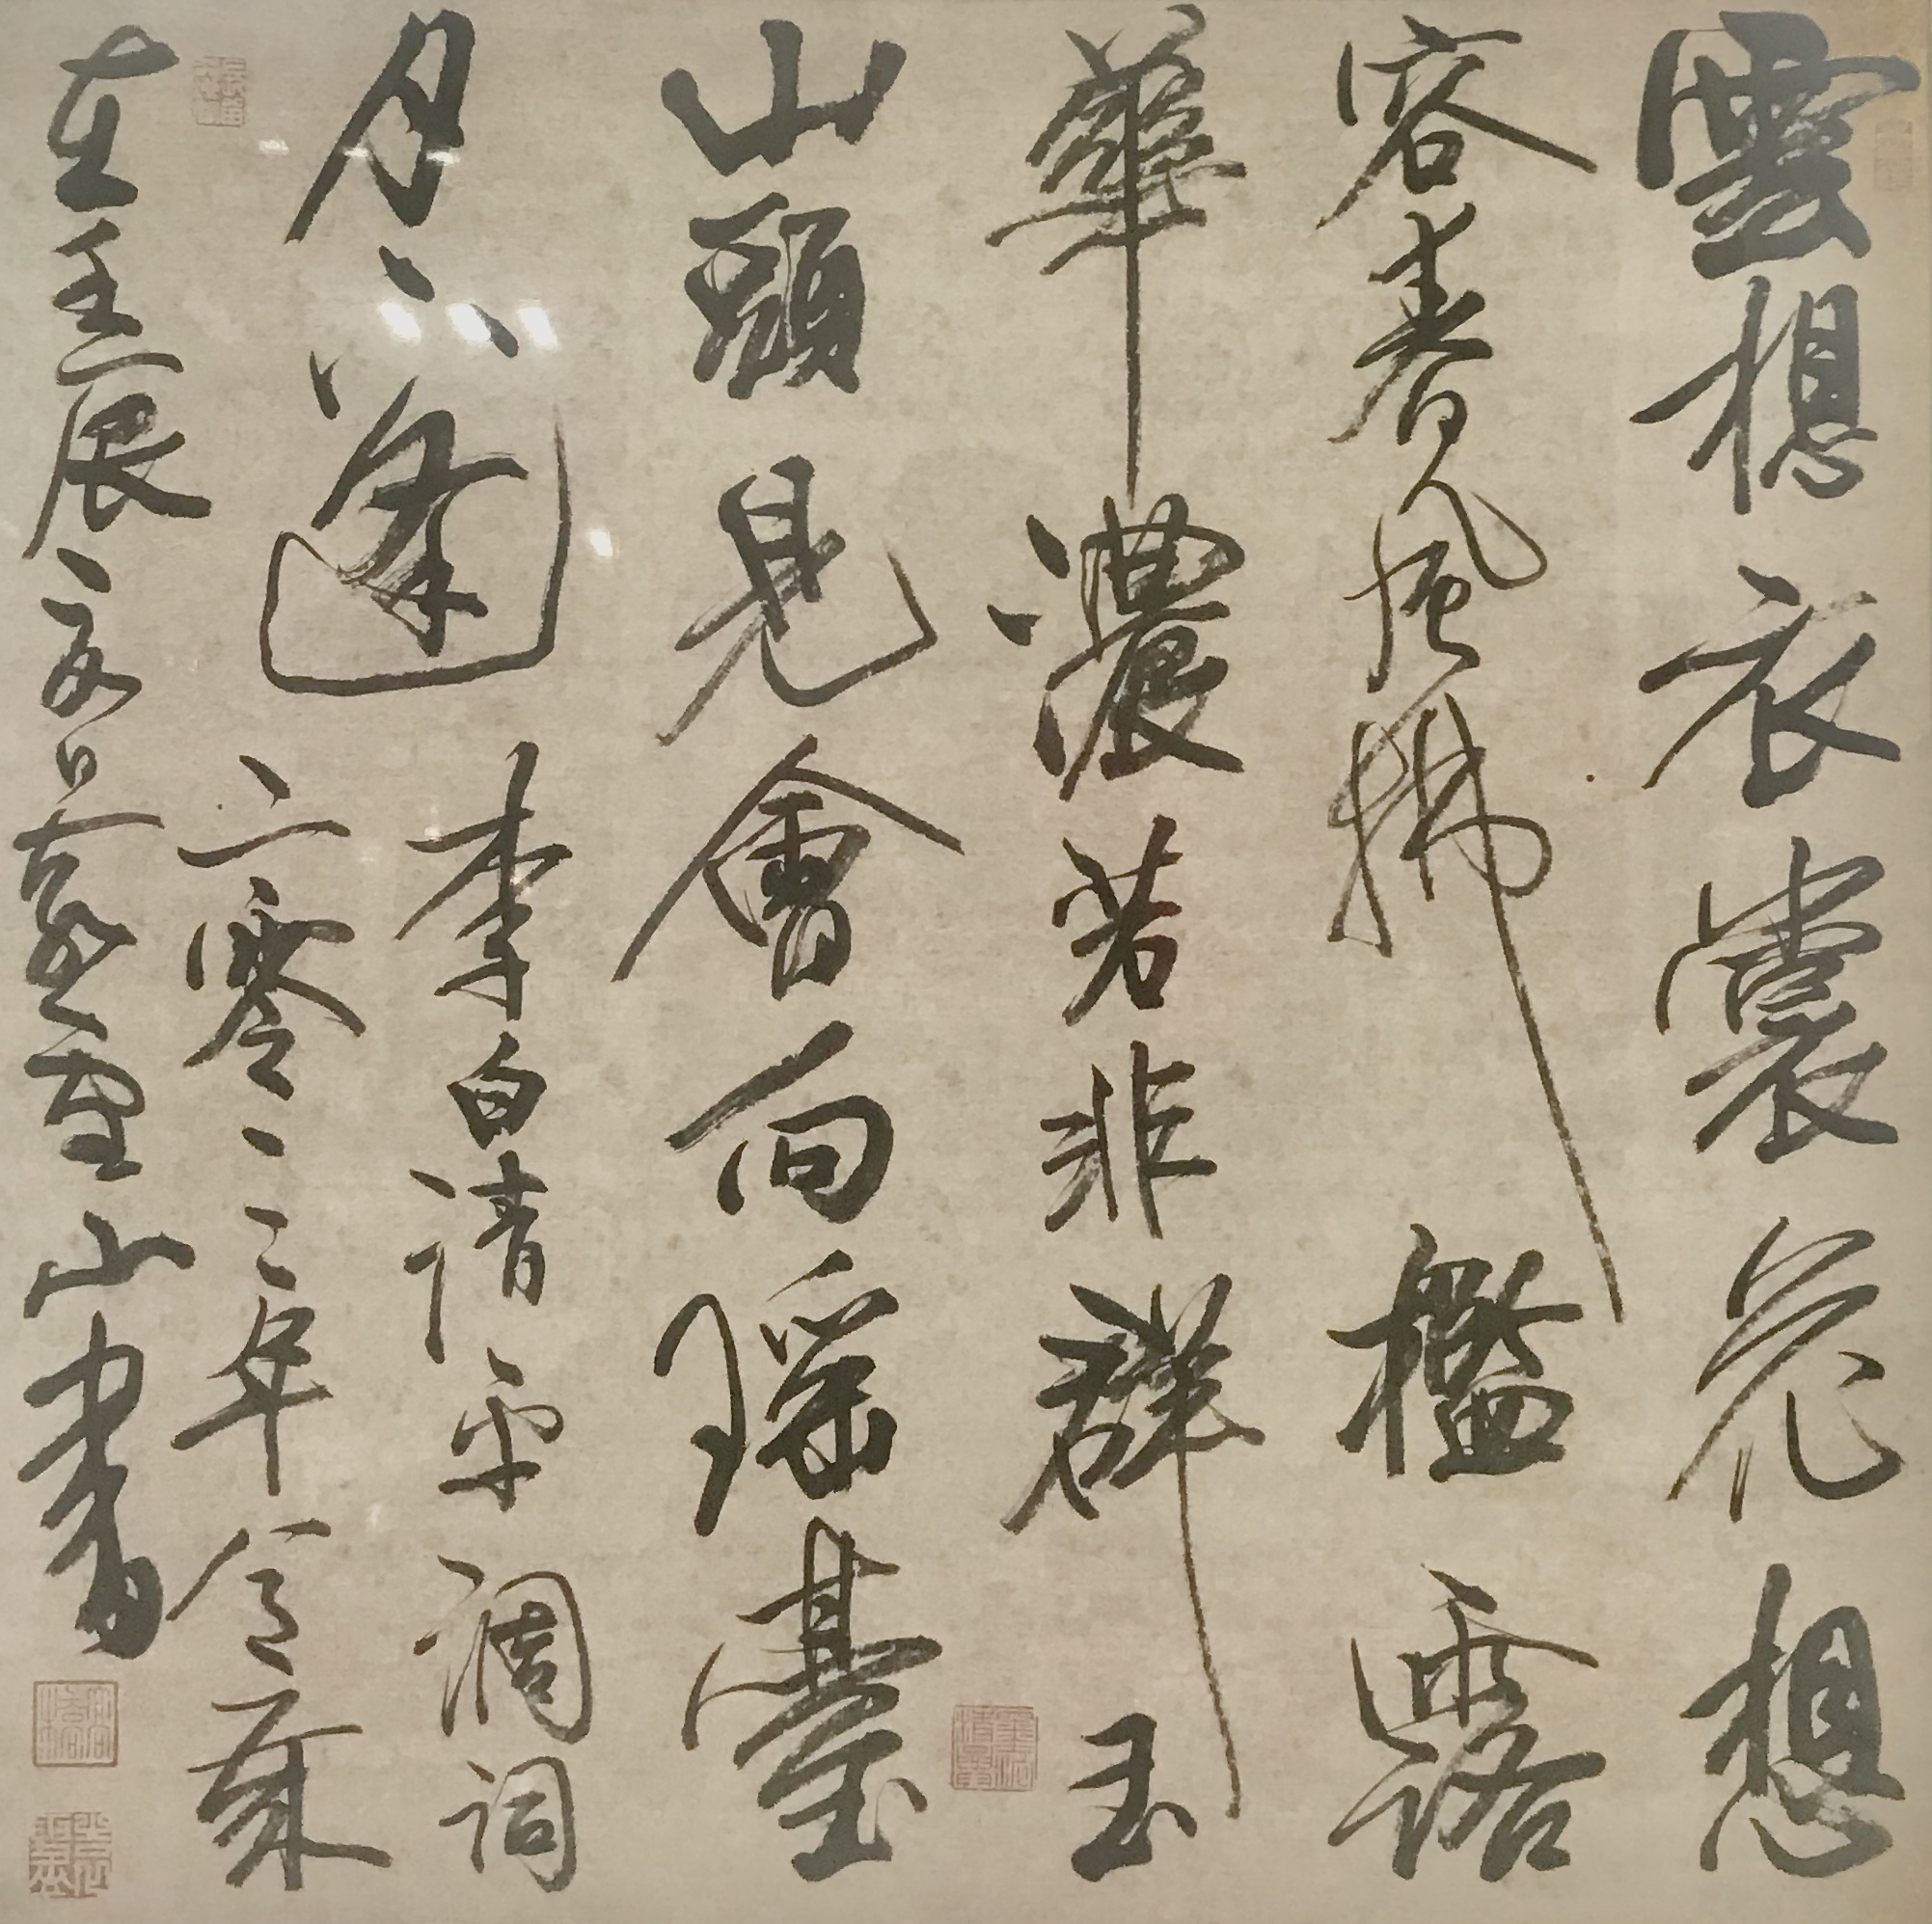 雲想衣裳花想
容春風拂檻露
華濃若非群玉
山頭見會向瑤臺
月下逢 李白清平調詞
二零一二年今歲
在壬辰夏日山書